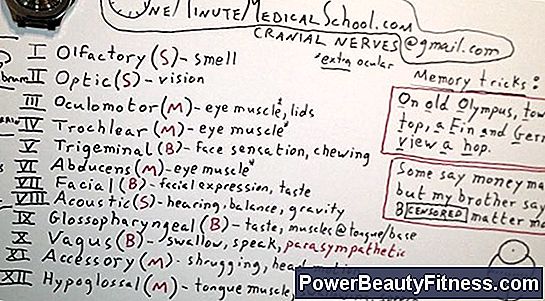 OneMinuteMedicalSchool.com
CRANIAL NERVES@gmail.com
*extra ocular
I Olfactory(S)-smell
II Optic(S)-vision
III Oculomotor(M)-eye muscle*, lids
IV Trochlear(M)-eye muscle*
V Trigeminal(B)-face sensation, chewing
VI Abducens(M)-eye muscle*
VII Facial(B)-facial expression, taste
VIII Acoustic(S)-hearing, balance, gravity
IX Glossopharyngeal(B)-taste, muscles@tongue/base
X Vagus(B)-swallow, speak, parasympathetic
XI Accessory(M)-shrugging, head
XII Hypoglossal(M)-tongue muscle,
Memory tricks:
On old Olympus,
top, a Fin and
view a hop.
Some say money
but my brother
B CENSORED matter
PowerBeautyFitness.com